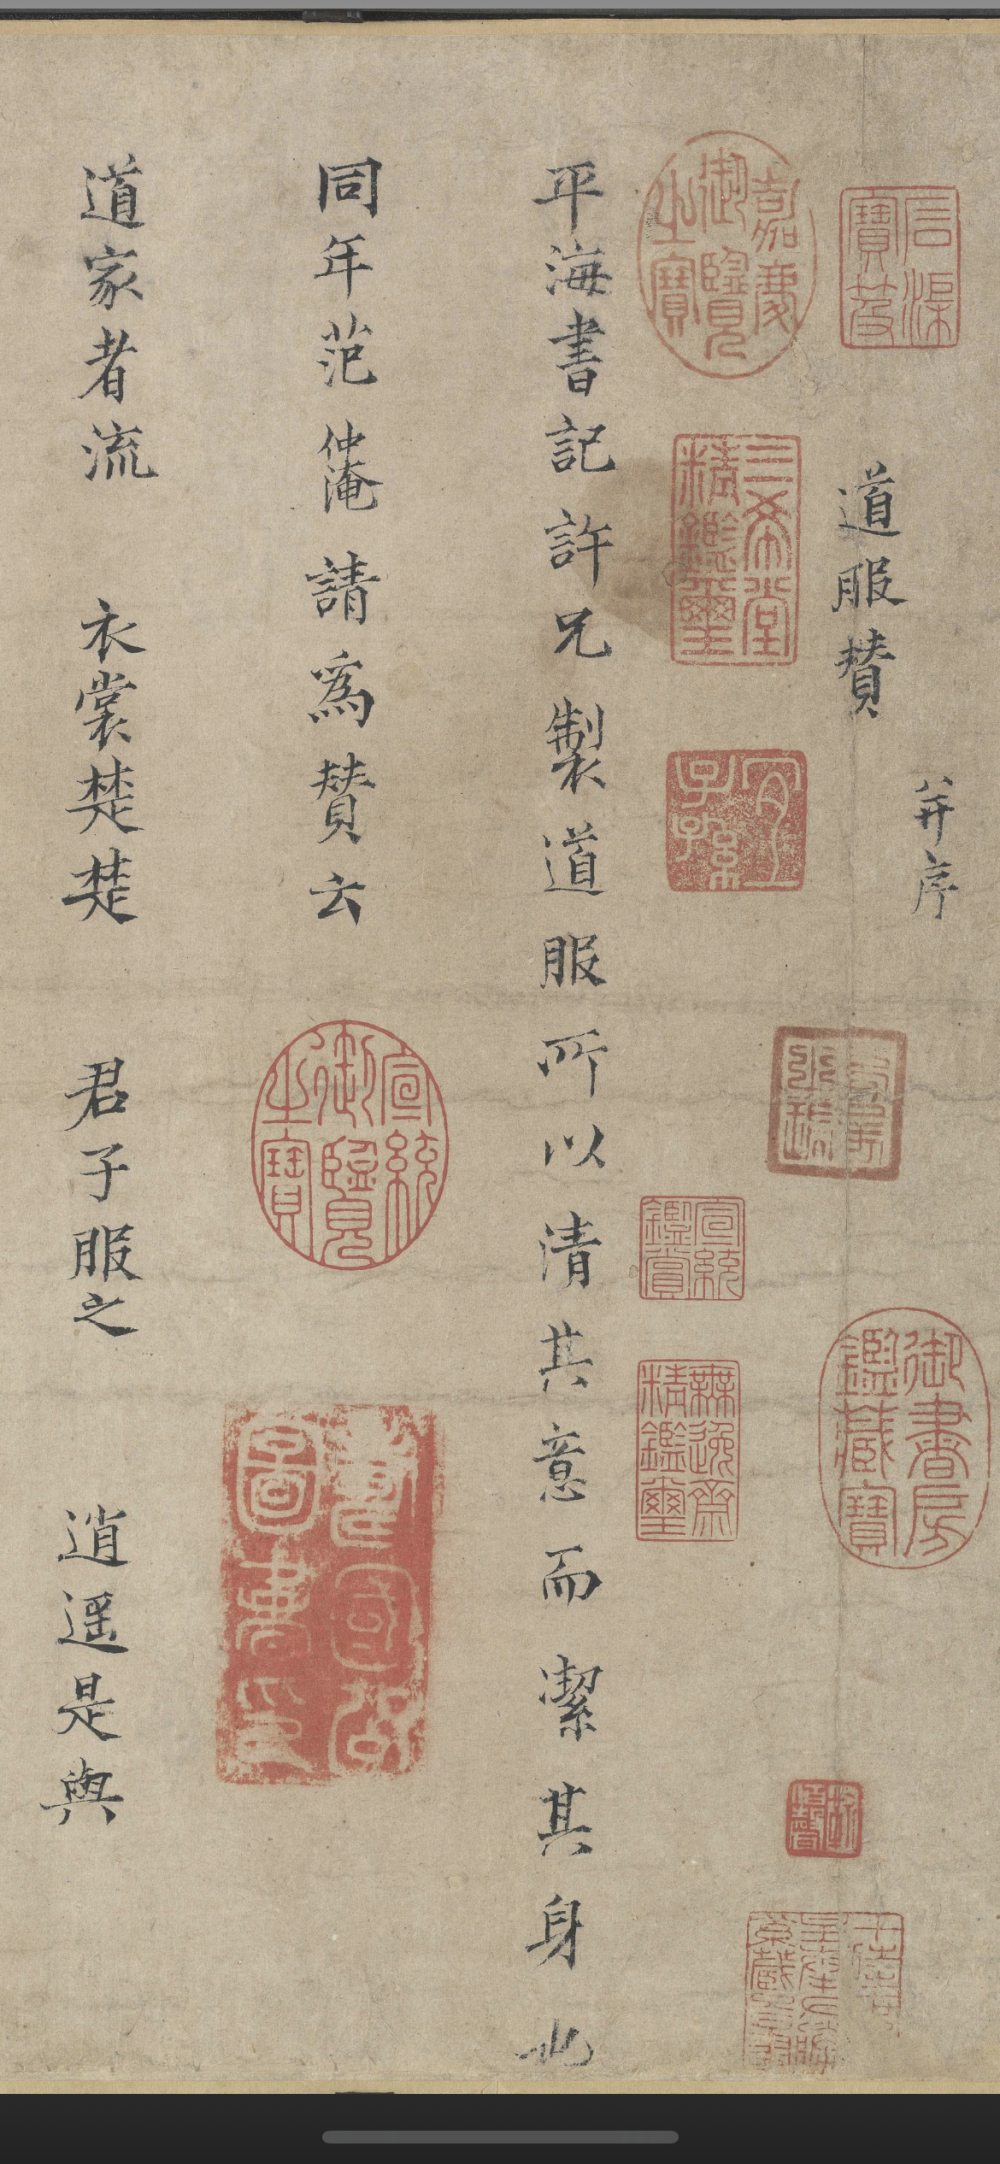 石渠寶笈
道服賛
并序
御書房鑑藏寶
嘉慶御覽之寶
三希堂精鑑璽
宜子孫
宣統鑑賞
無逸齋精鑑璽
平海書記許兄製道服所以清其意而潔其身也
同年范仲淹請爲賛云
宣統御覽之寶
道家者流 衣裳楚楚 君子服之 逍遥是與